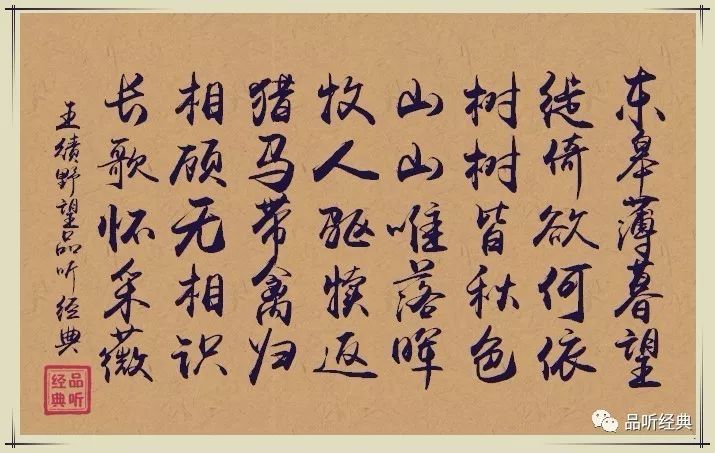 东皋薄暮望
徙倚欲何依
树树皆秋色
山山唯落晖
牧人驱犊返
猎马带禽归
相顾无相识
长歌怀采薇
王绩野望品听经典
品听经典
品听经典